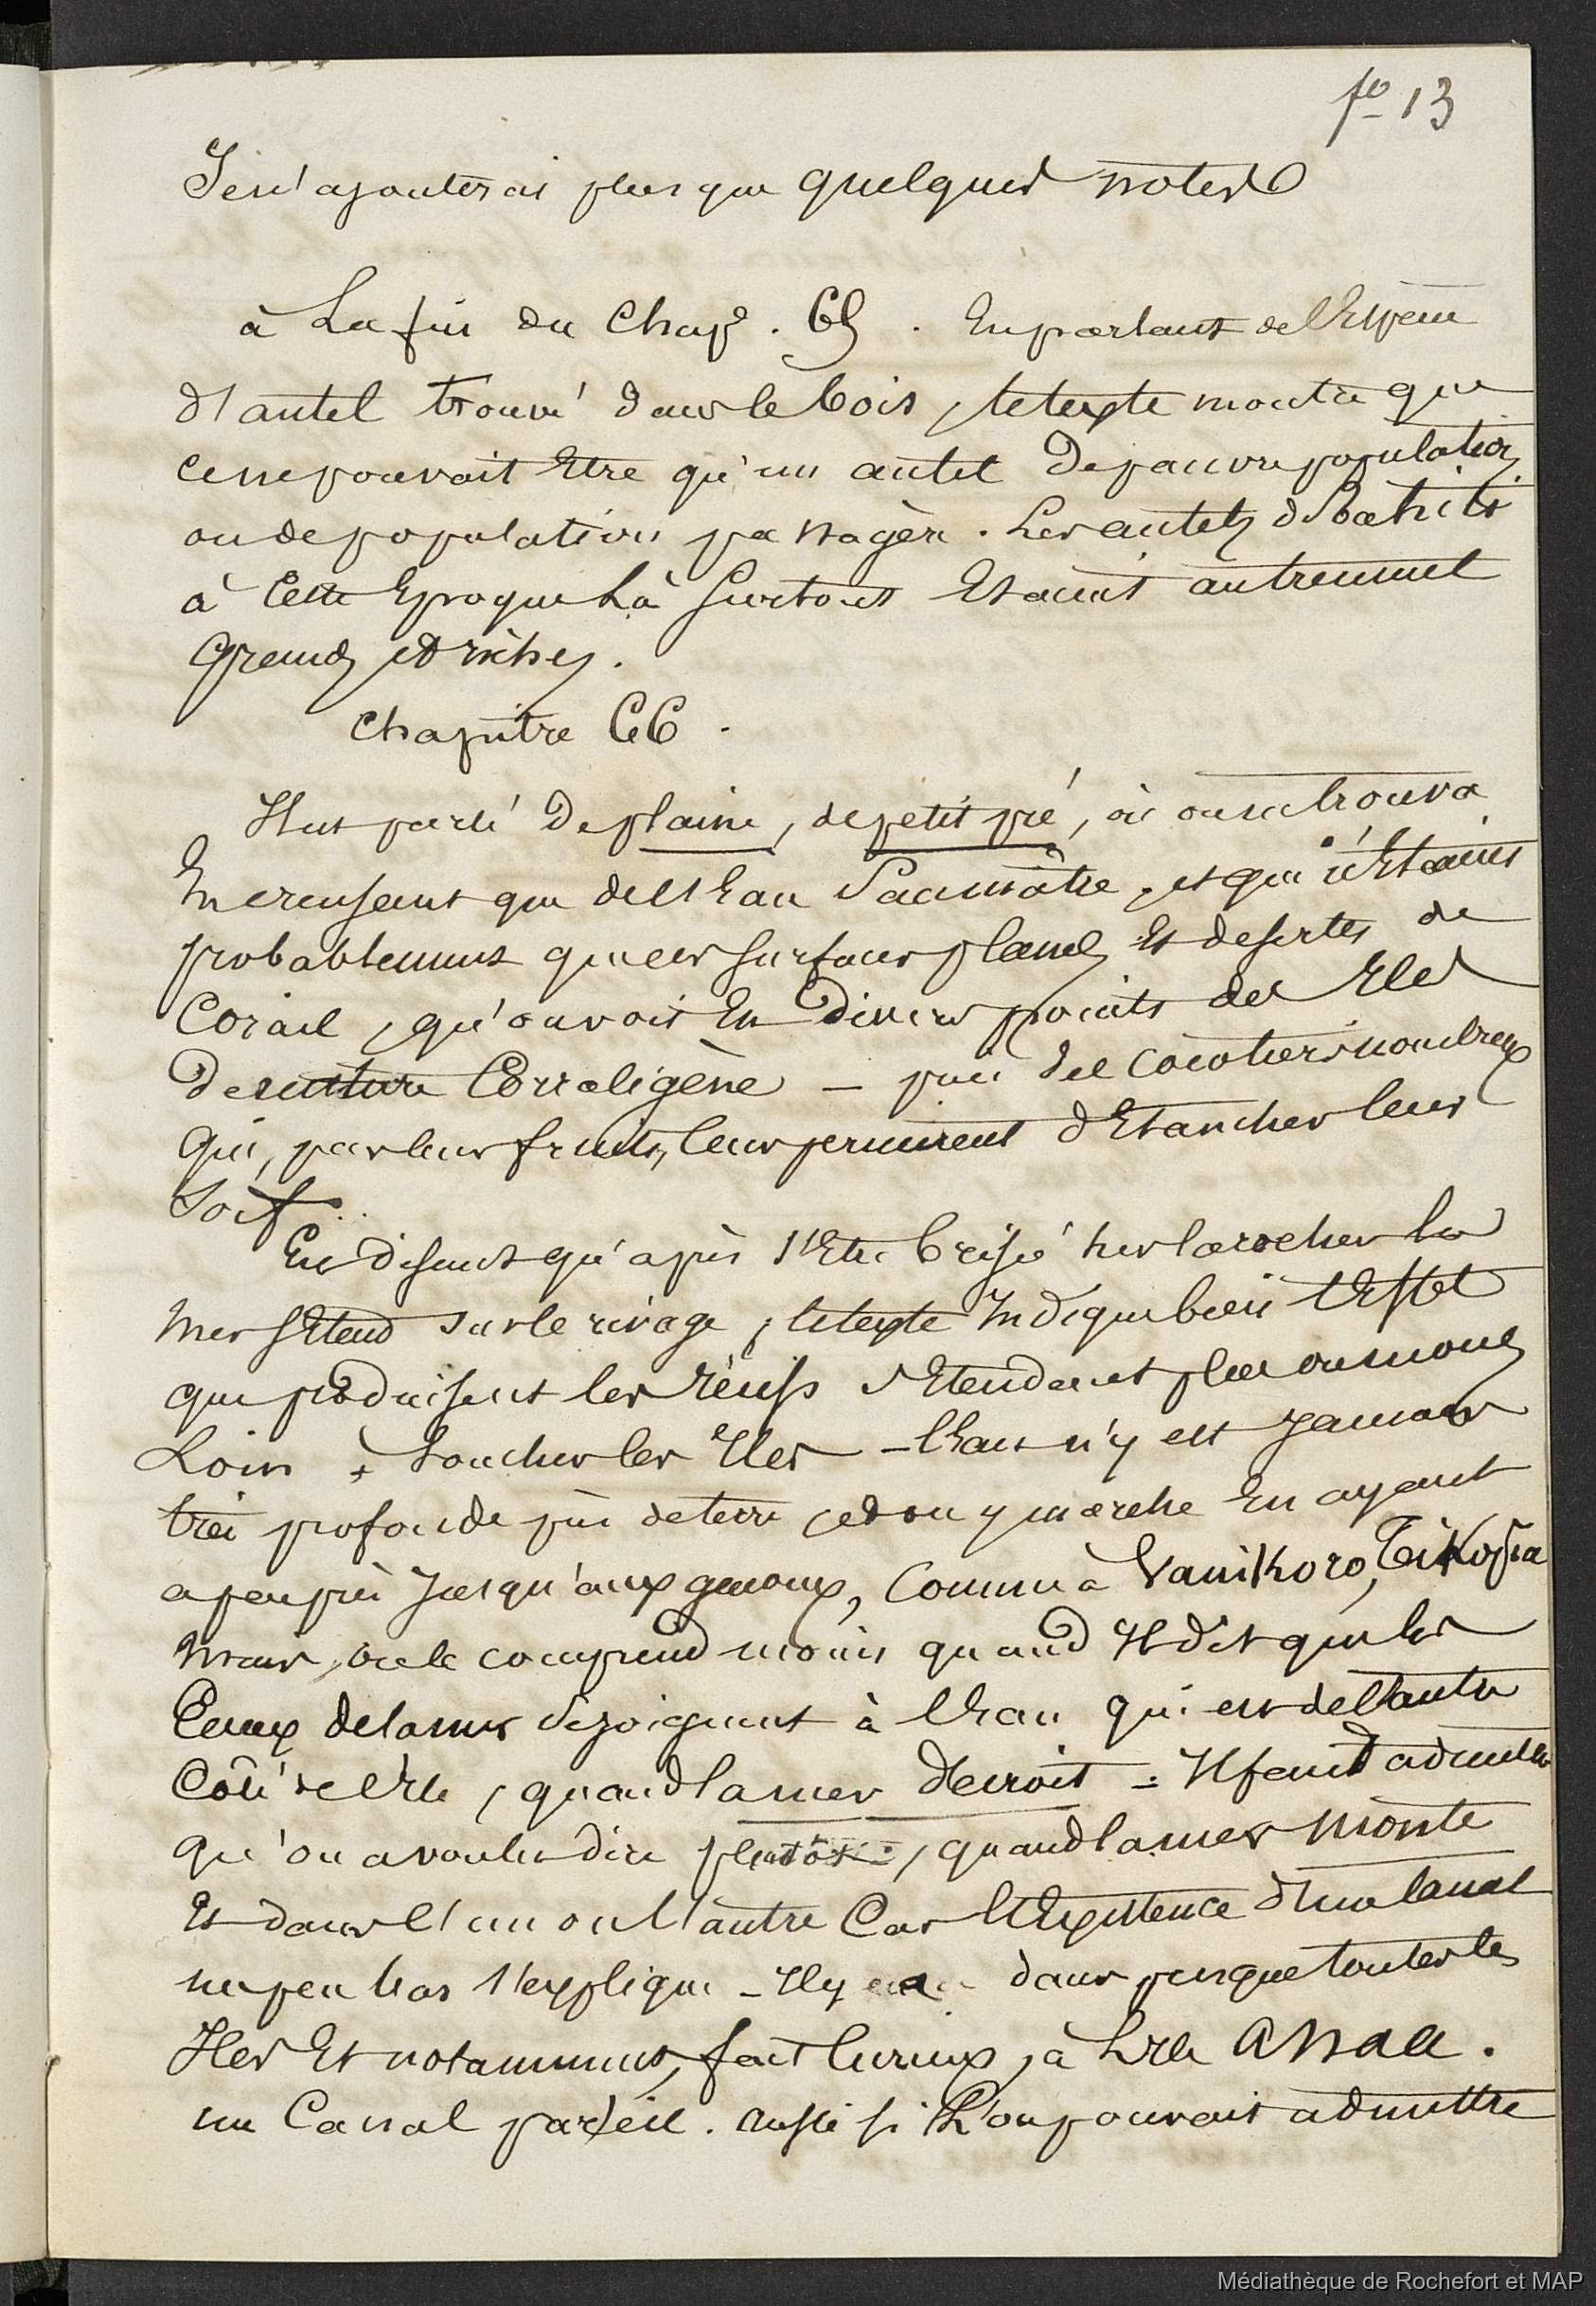 fo 13
Je n'ajouterai plus que quelques notes
à La fin du Chap. 65. En parlant de l'Espèce
d'autel trouvé dans le bois, le texte montre que
ce ne pouvait Etre qu'un autel De pauvre population
ou de population passagère. Les autels de Tahiti
à Cette Epoque Là Surtout Etaient autrement
Grands et riches.
Chapitre 66.
Il est parlé De plaine, de petit pré, où on ne trouva
En creusant que de l'Eau Saumâtre, et qui n'Etaient
probablement que ces surfaces planes Et desertes de
Corail, qu'on voit En Divers points des Iles
De nature Corraligène — puis des cocotiers nombreux
Qui, par leurs fruits, leur permirent d'Etancher leur
Soif..
En Disant qu'après s'Etre brisé sur la rocher la
mer s'Etend sur le rivage, le texte Indique bien l'Effet
que produisent les récifs s'Etendant plus ou moins
Loin & touchus les Iles — l'Eau n'y est Jamais
très profonde près de terre et on y marche En ayant
a peu près Jusqu'aux genoux, Comme à Vanikoro, Tikopia
mais, on le comprend moins quand Il dit que les
Eaux de la mer se joignent à l'Eau qui est de l'autre
Côté de l'Ile, quand la mer decroit = Il faut admettre
qu'on a voulu dire plutôt, quand la mer monte
Et dans l'un ou l'autre Cas l'Existence d'un Canal
un peu bas s'explique — Il y a dans presque toutes les
Iles Et notamment, fait Curieux, à L'Ile Anaa.
un Canal pareil. Aussi si L'on pouvait admettre
Médiathèque de Rochefort et MAP